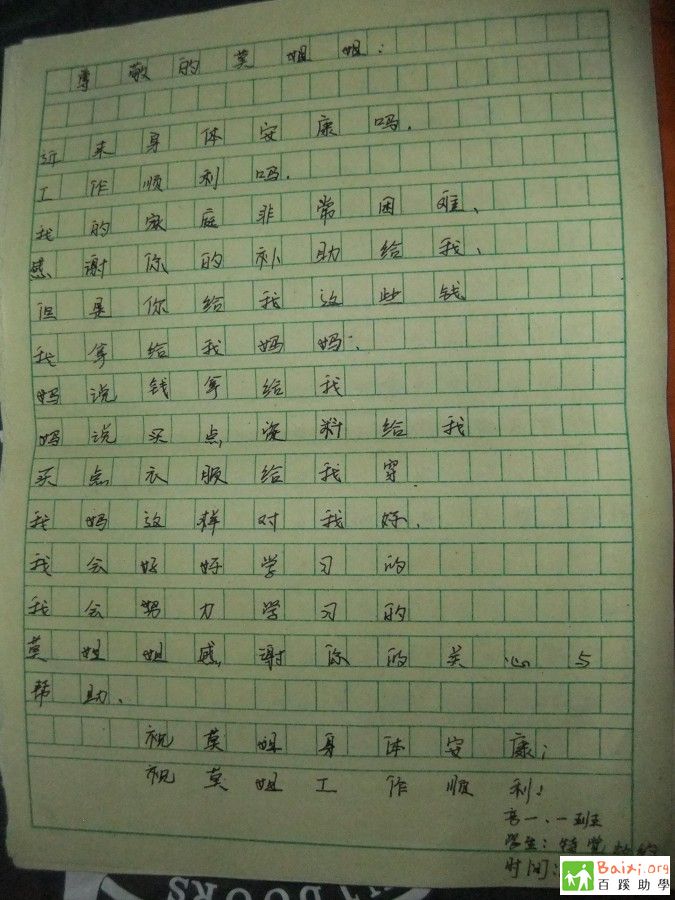 尊敬的莫姐姐：
近来身体安康吗．
工作顺利吗．
我的家庭非常困难、
感谢你的补助给我、
但是你给我这些钱
我拿给我妈妈．
妈说钱拿给我
妈说买点资料给我
买点衣服给我穿
我妈这样对我好．
我会好好学习的
我会努力学习的
莫姐姐感谢你的关心与
帮助．
祝莫姐身体安康；
祝莫姐工作顺利！
高一．一班
学生：
时间：
Baixi.org
百蹊助學